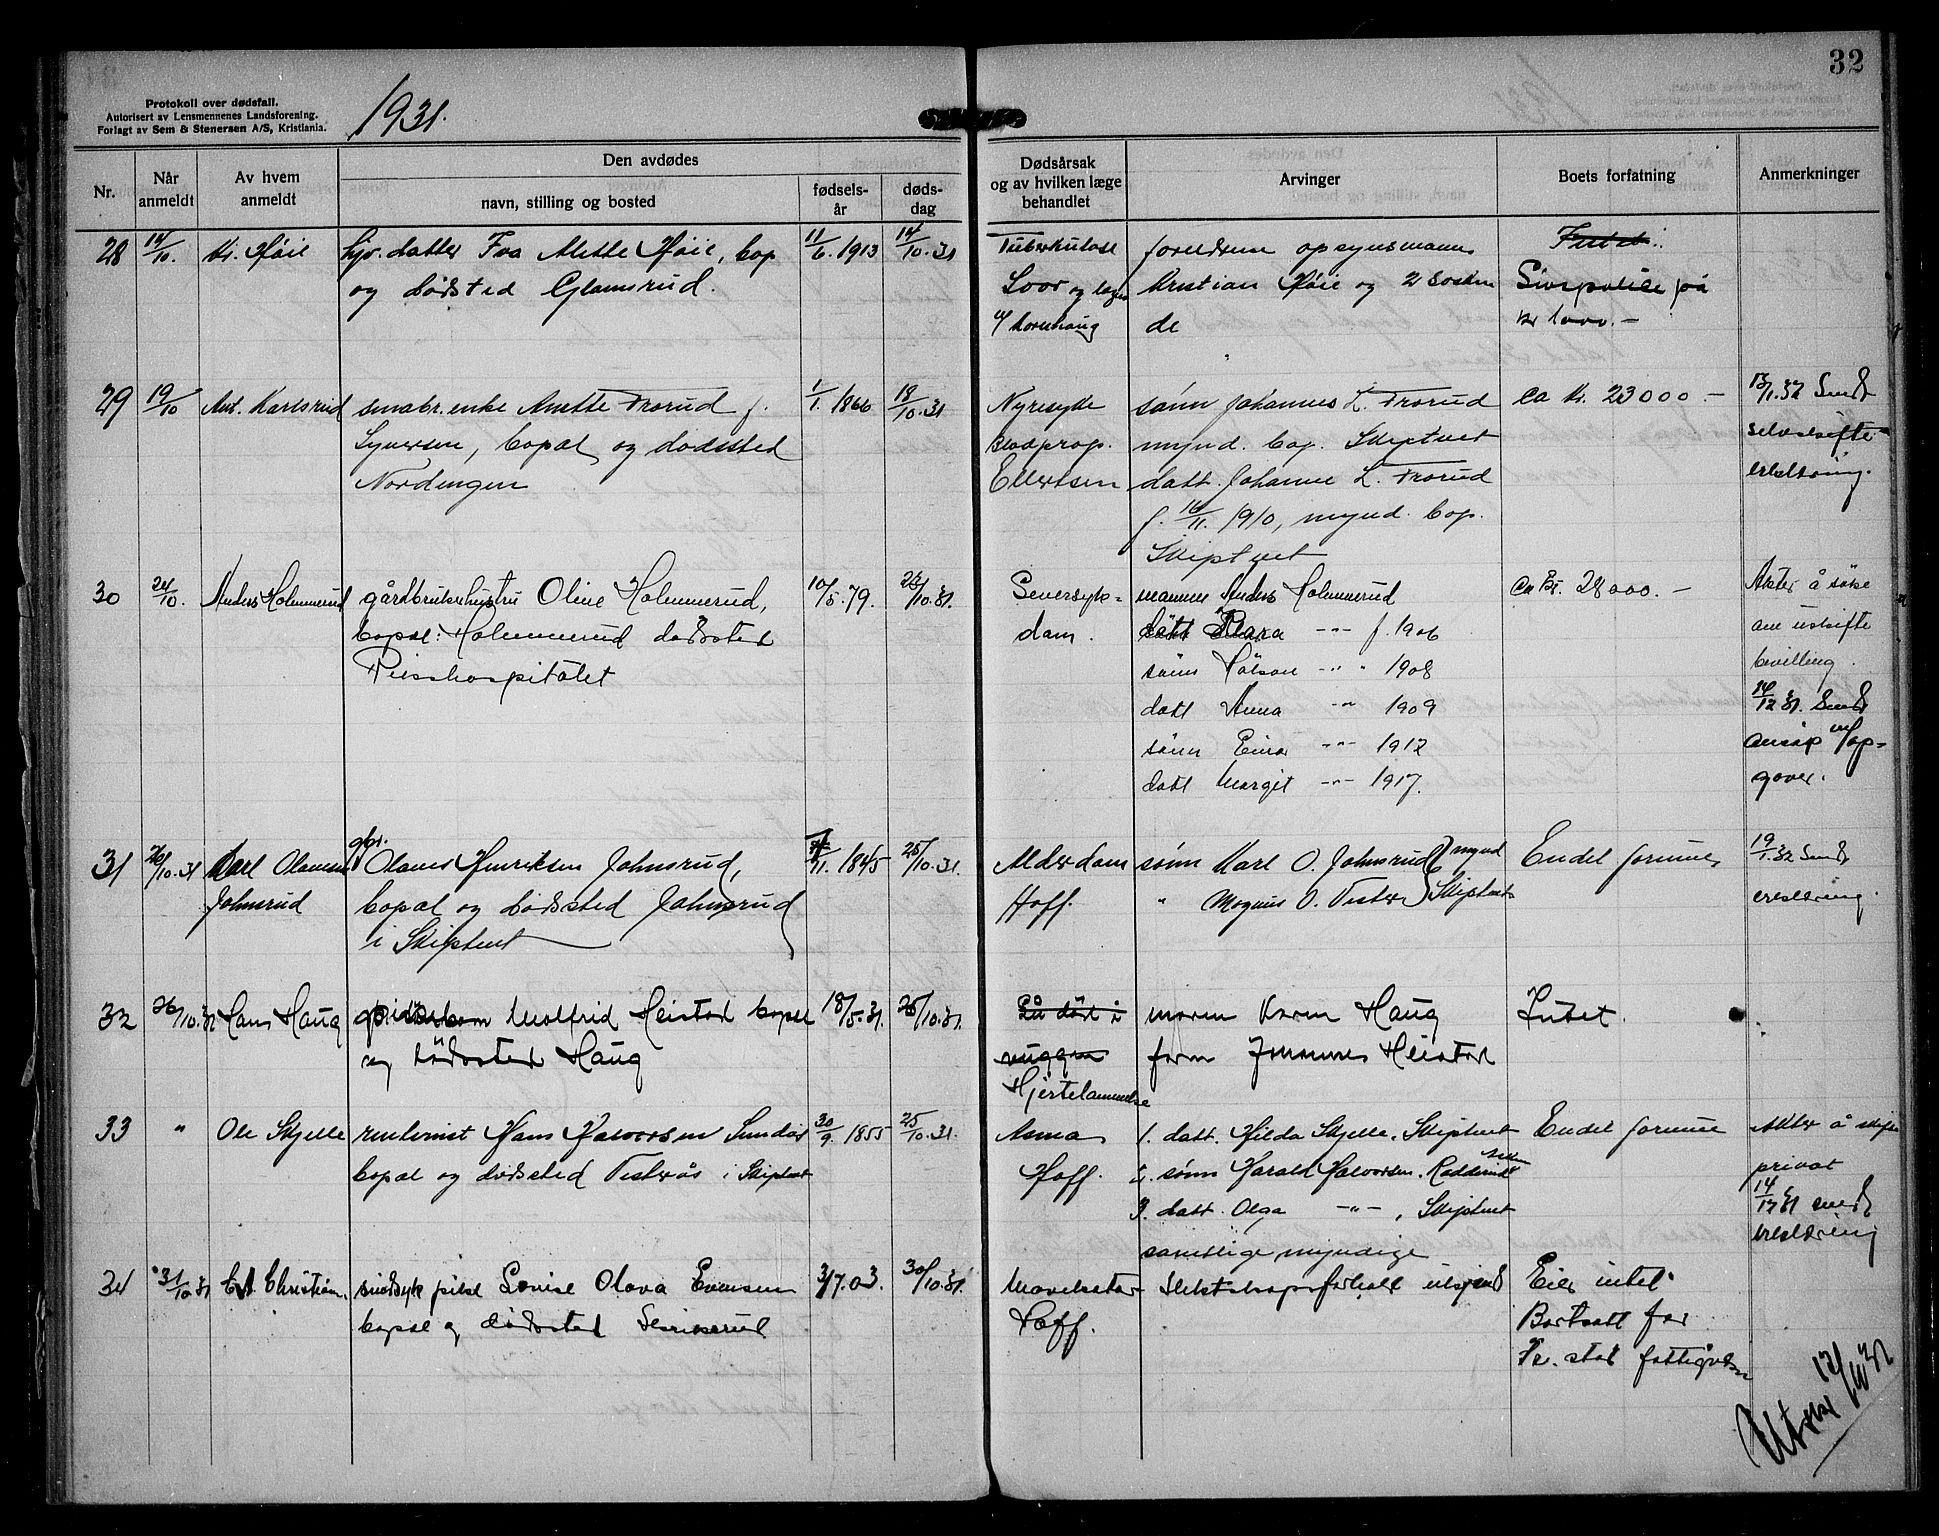 32
Protokoll over dødsfall.
Autorisert av Lensmennenes Landsforening.
Forlagt av Sem & Stenersen A/S, Kristiania.
1931.
Nr.
Når anmeldt
Av hvem anmeldt
Den avdødes
navn, stilling og bosted
fødsels-år
døds-dag
Dødsårsak og av hvilken læge behandlet
Arvinger
Boets forfatning
Anmerkninger
28 14/10. Kr. Høie hjv. datter Eva Mette Høie, bop 11/6. 1913 14/10.31
og dødsted Glamsrud.
Tuberkulose
foreldrene opsynsmann
Kristian Høie og 2 søsken
de
Intet.
Livspolise på
kr 1000.-
29 19/10 Ant. Karlsrud småbr. enke Anette Trorud f. 1/1. 1866 18/10.31
Syversen, bopæl og dødssted
Nordengen
Nyresyke
Blodprop.
Ellertsen
sønn Johannes L. Trorud
mynd. bop. Skiptvet
datt. Johanne L. Trorud
f. 16/11. 1910, mynd. bop.
Skiptvet
ca kr. 23000.-
13/1.32 Sendt
selvskifte
erklæring.
30 24/10. Anders Holmmerud gårdbrukerhustru Oline Holmmerud, 10/5.79. 23/10.31.
bopæl: Holmmerud dødssted
Rikshospitalet
Sukkersyk=
dom.
mannen Anders Holmmerud
datt Klara -"- f. 1906
sønn -"- " 1908
datt Anna -"- 1909
sønn Einar -"- 1912
datt Margit -"- 1917.
ca kr. 28000.-
Akter å søke
om uskifte
bevilling.
14/12 31. Sendt
ansøk m/op=
gaver.
31 26/10.31 Karl Olavsen gbr. Olaves Henriksen Johnsrud, /11. 1845 25/10.31.
Johnsrud bopæl og dødssted Johnsrud
i Skiptvet
Alderdom
Hoff.
sønn Karl O. Johnsrud } mynd
" Magnus O. Vister } Skiptvet
Endel formue
19/1.32 Sendt
erklæring.
32 26/10.31 Hans Haug Molfrid Heistad bopæl 18/5.31. 25/10.31.
og dødssted Haug
Lå død i
vuggen
Hjertelammelse
moren Karen Haug
faren Johannes Heistad
Intet.
33 " Ole Skjelle rentenist Hans Halvorsen Sundås 30/9. 1855 25/10.31.
bopæl og dødssted Vesterås i Skiptvet
Asma
Hoff.
1. datt. Hilda Skjelle, Skiptvet
2. sønn Harald Halvorsen.
3. datt. Olga -"-, Skiptvet
samtlige myndige
Endel formue
Akter å skifte
privat
14/12 31 sendt
erklæring
34 31/10.31 Chr. Christian. sindsyk pike Lovise Olava Evensen 3/7.03. 30/10.31.
bopæl og dødssted
Mavekatar
Hoff.
Slektskapsforhold ukjent
Eier intet
Bortsatt for
Fr. stad fattigvesen